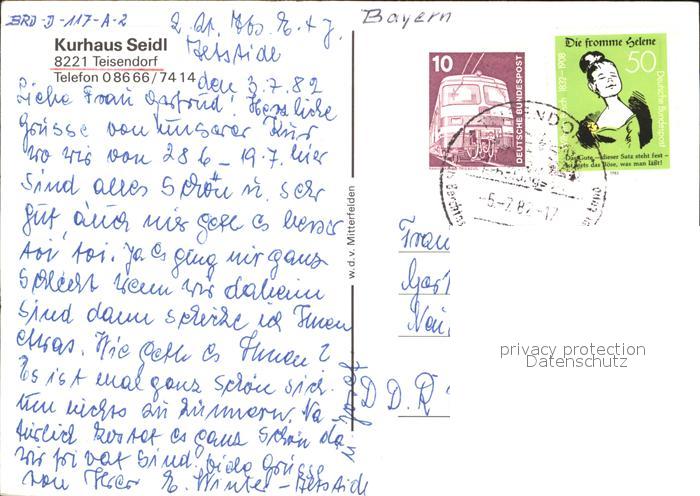 BRD-D-117-A-2
Bayern
Kurhaus Seidl
8221 Teisendorf
Telefon 0 86 66 / 74 14
den 3.7.82
Liebe Frau Herzliche
Grüsse von unserer Kur
wo wir von 28.6 – 19.7. hier
sind alles Schön u. sehr
gut, auch mir geht es besser
toi, toi. Ja es ging mir ganz
schlecht wenn wir daheim
sind dann schicke ich Ihnen
etwas. Wie geht es Ihnen?
Es ist mal ganz schön sich
um nichts zu kümmern. Na
türlich kostet es ganz schön da
wir privat sind. Viele Grüsse
von Ihrer E. Winter-
u. Josef
w.d.v. Mitterfelden
10
DEUTSCHE BUNDESPOST
Die fromme Helene
50
1832-1908
Deutsche Bundespost
Das Gute – dieser Satz steht fest –
ist stets das Böse, was man läßt!
1982
-5.-7.82-17
Frau
D D.R
privacy protection
Datenschutz